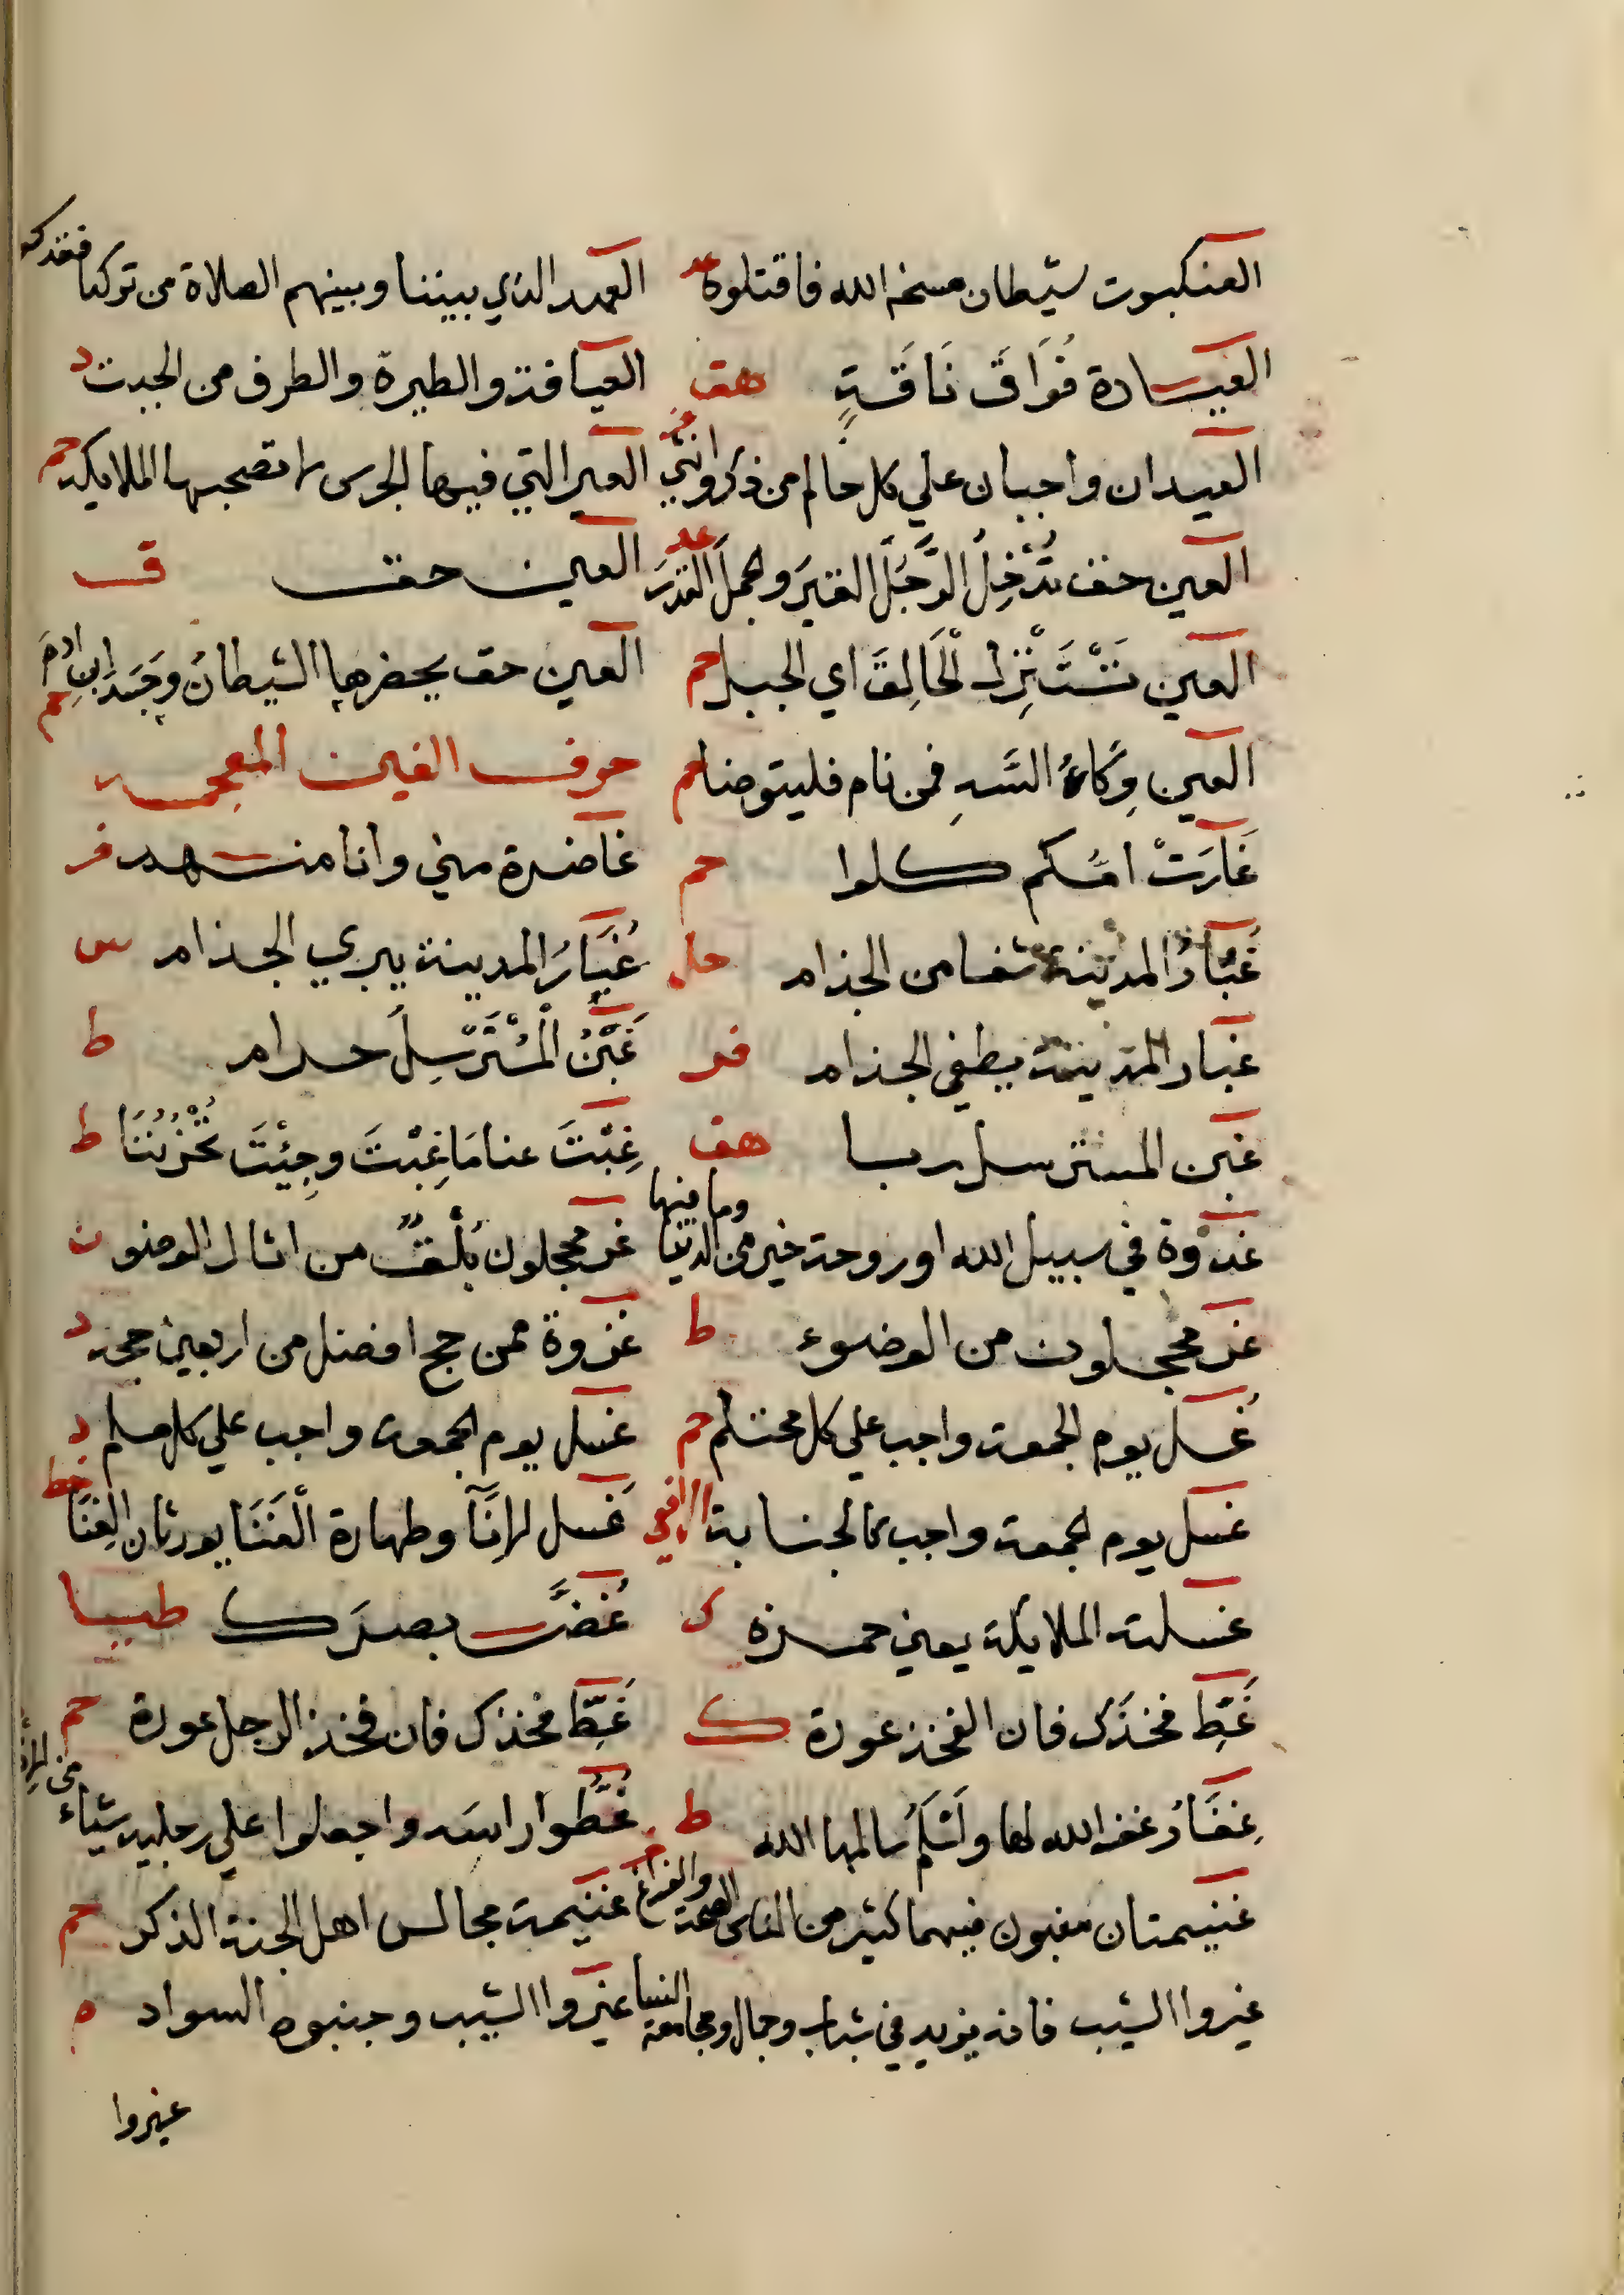 العنكبوت شيطان مسخه الله فاقتلوه عد العهد الذي بيننا وبينهم الصلاة من تركها فقد كفر
العيادة فُوَاقَ نَاقَةٍ هق العيافة والطيرة والطرق من الجبت د
العيدان واجبان علي كل حالم من ذكر وانثي فر العير التي فيها الجرس لا تصحبها الملايكة حم
العين حق تُدْخِلُ الرَّجُلَ القبرَ والجملَ القِدْرَ عد العين حق ق
العين تَسْتَنْزِلُ الْحَالِقَ اي الجبل حم العين حق يحضرها الشيطانُ وحَسَدُ ابنِ ادمَ حم
العين وِكَاءُ السَّهِ فمن نام فليتوضا حم حرف الغين المعجمه
غَارَتْ امُّكم كلوا حم غاضرة مني وانا منهم فر
غُبَارُ المدينة شفا من الجذام حل غُبَارُ المدينة يبري الجذام س
غبار المدينة يطفي الجذام فر غَبْنُ الْمُسْتَرْسِلِ حرام ط
غبن المسترسل ربا هق غِبْتَ عنا مَا غِبْتَ وجِئْتَ تُحْزِنُنَا ط
غدوة في سبيل الله او روحة خير من الدنيا وما فيها غر محجلون بُلْقٌ من اثار الوضو ن
غر محجلون من الوضوء ط غزوة لمن حج افضل من اربعين حجة د
غُسل يوم الجمعة واجب علي كل محتلم حم غسل يوم الجمعة واجب علي كل مسلم د
غسل يوم الجمعة واجب كالجنابة الرافعي غَسل الإنَآ وطهارة الْفِنَا يورثان الغِنَا خط
غسلته الملايكة يعني حمزة ك غُضَّ بصرَك طيا
غَطِّ فخذَك فان الفخذ عورة ك غَطِّ فخذك فان فخذ الرجل عورة حم
غِفَارُ غفر الله لها واَسْلَمُ سالمها الله ط غَطُّوا راسَه واجعلوا علي رجليه شياء من الاذخر
غنيمتان مغبون فيهما كثير من الناس الصحة والفراغ غنيمة مجالس اهل الجنة الذكر حم
غيروا الشيب فانه يزيد في شباب وجمال ومجامعة النسا غيروا الشيب وجنبوه السواد م
غيروا